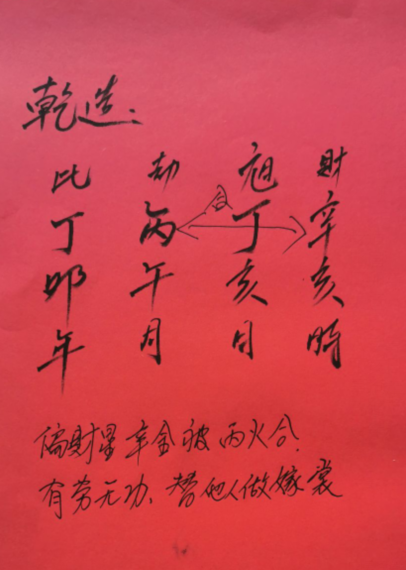 乾造:
比丁卯年
劫丙午月
合
日元丁亥日
財辛亥時
偏財星辛金被丙火合.
有劳无功、替他人做嫁裳